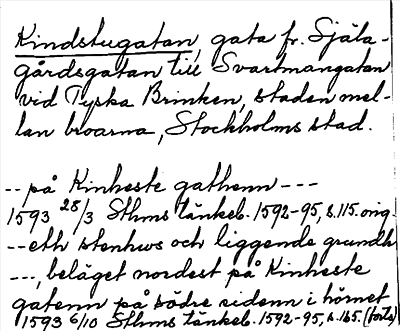 Kindstugatan, gata fr. Själa-
gårdsgatan till Svartmangatan
vid Tyska Brinken, staden mel-
lan broarna, Stockholms stad.
-- på Kinheste gathenn ---
1593 28/3 Sthms tänkeb. 1592-95, s. 115. orig.
-- eth stenhws och liggende grundh
---, beläget nordest på Kinheste
gatenn på södre sidenn i hörnet
1593 6/10 Sthms tänkeb. 1592-95, s. 165. (forts)